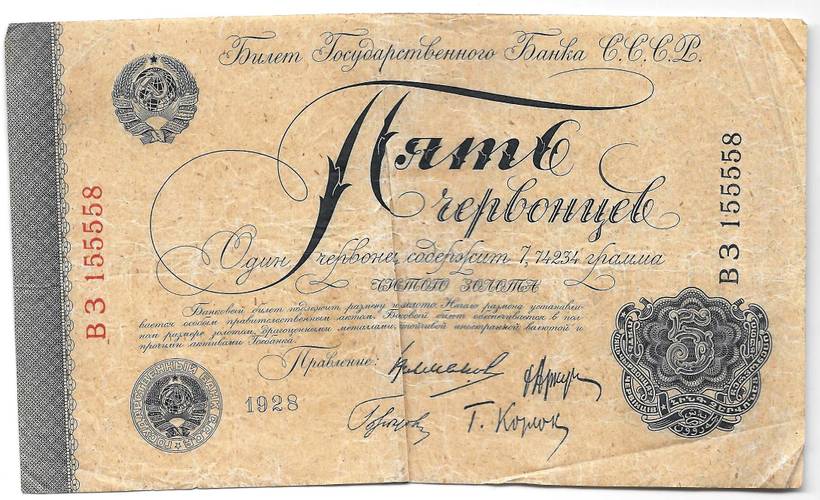 Билет Государственного Банка С.С.С.Р.
Пять
червонцев
Один червонец содержит 7,74234 грамма
ЧИСТОГО ЗОЛОТА
Банковый билет подлежит размену на золото. Начало размена устанавли-
вается особым правительственным актом. Банковый билет обеспечивается в пол-
ном размере золотом, драгоценными металлами, устойчивой иностранной валютой и
прочими активами Госбанка.
Правление:
Г. Корлок
1928
ВЗ 155558
ВЗ 155558
5
ГОСУДАРСТВЕННЫЙ БАНК СССР